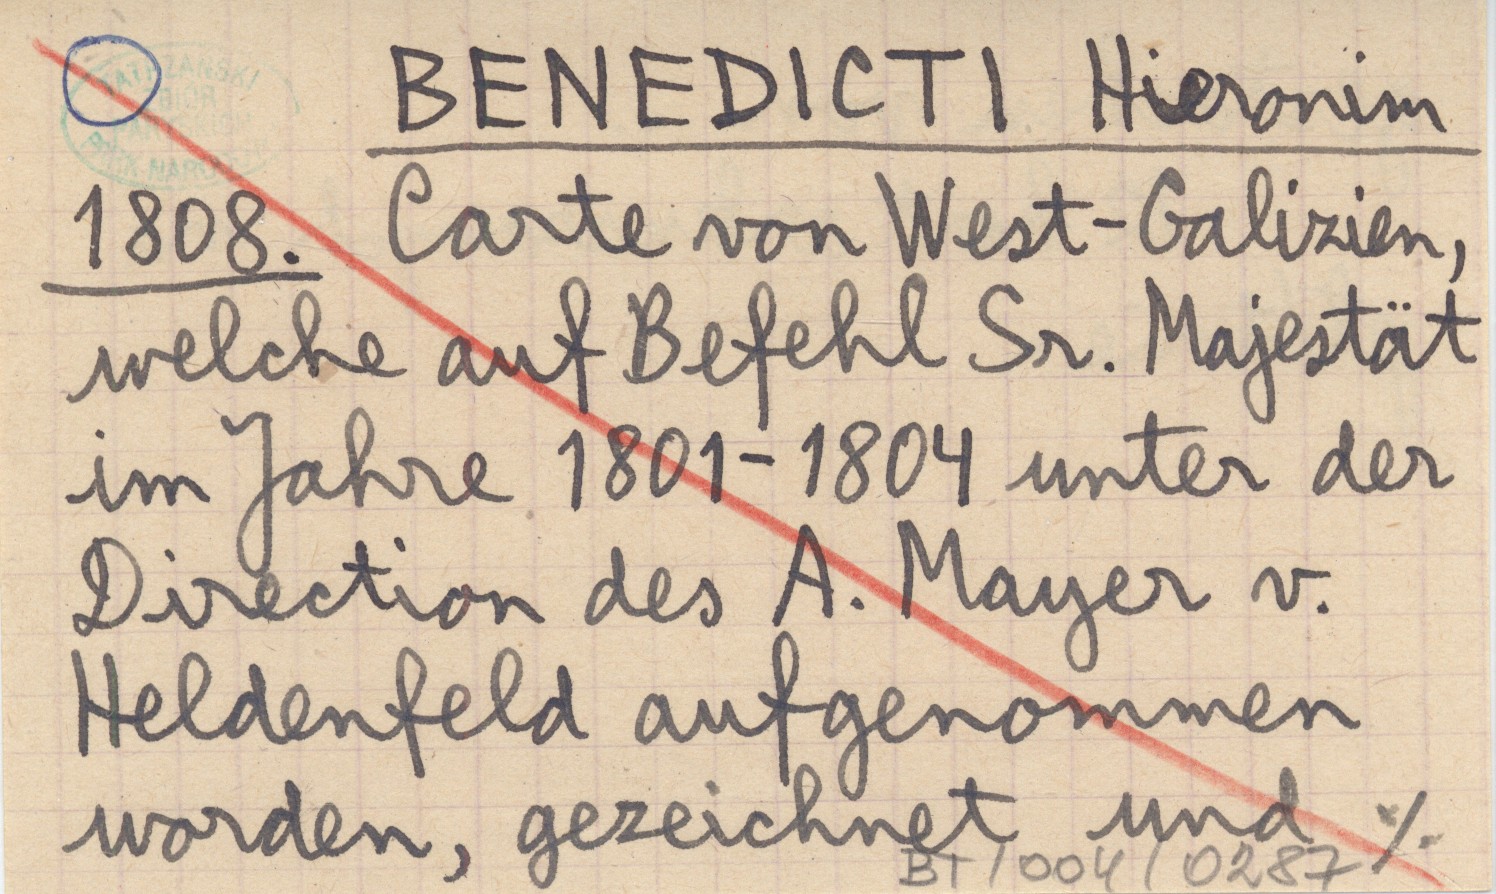 TATRZAŃSKI
PARK NARODOWY
BENEDICTI Hieronim
1808. Carte von West-Galizien,
welche auf Befehl Sr. Majestät
im Jahre 1801-1804 unter der
Direction des A. Mayer v.
Heldenfeld aufgenommen
worden, gezeichnet und ./.
BT/004/0287